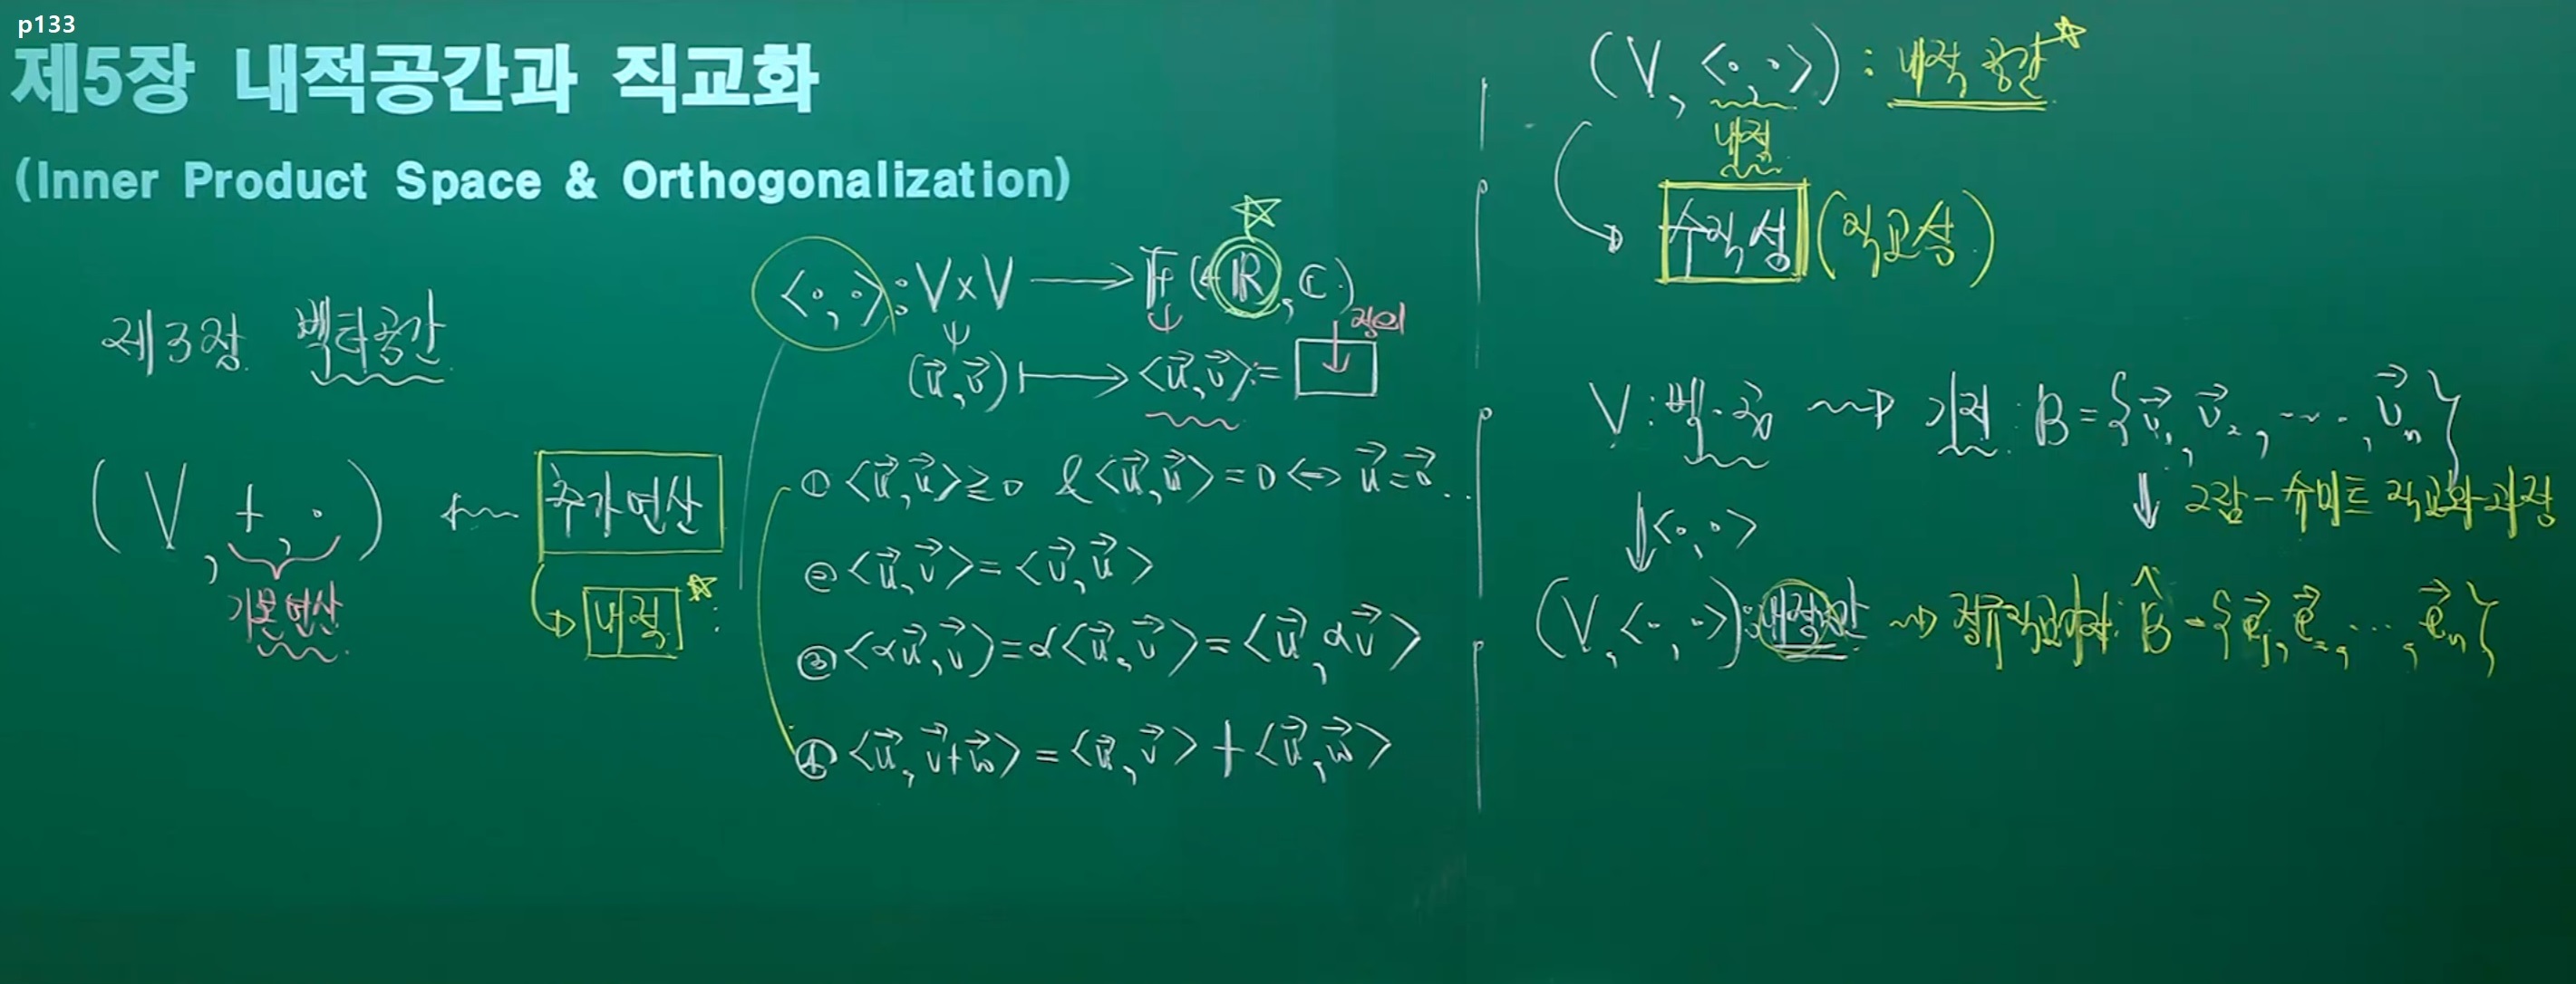 p133
제5장 내적공간과 직교화
(Inner Product Space & Orthogonalization)
제3장 벡터공간
(V, +, ·)
기본연산
추가연산
내적 :
<·,·> : V×V → F (ℝ, ℂ)
(u⃗, v⃗) ↦ <u⃗, v⃗> :=
정의
① <u⃗, u⃗> ≧ 0 & <u⃗, u⃗> = 0 ⇔ u⃗ = 0⃗ ..
② <u⃗, v⃗> = <v⃗, u⃗>
③ <αu⃗, v⃗> = α<u⃗, v⃗> = <u⃗, αv⃗>
④ <u⃗, v⃗+w⃗> = <u⃗, v⃗> + <u⃗, w⃗>
(V, <·,·>) : 내적 공간
내적
수직성 (직교성)
V : 벡·공 ⇝ 기저 : B = {v⃗₁, v⃗₂, ···, v⃗ₙ}
↓ <·,·>
↓ 그람-슈미트 직교화 과정
(V, <·,·>) : 내적공간 ⇝ 정규직교기저 : B̂ = {e⃗₁, e⃗₂, ···, e⃗ₙ}